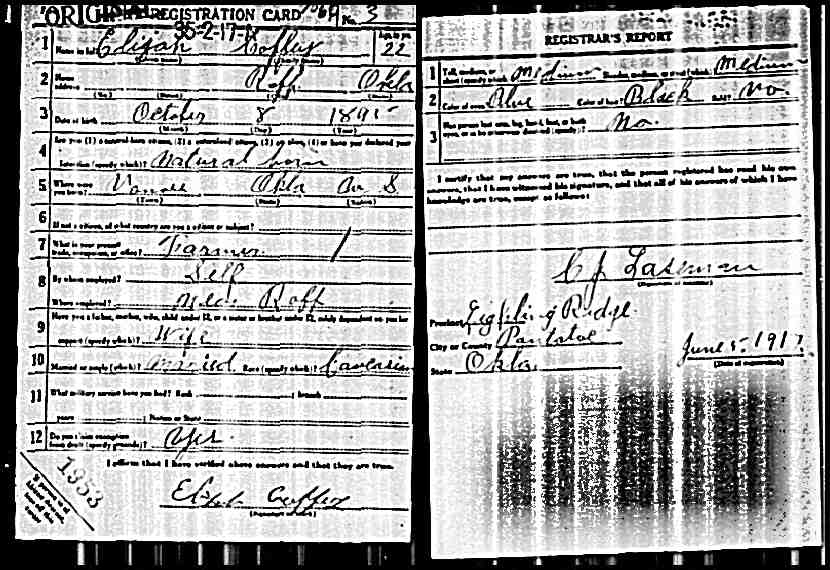 ORIGINAL REGISTRATION CARD No. 3
35-2-17-A
1 Name in full Elijah Coffey Age, in yrs. 22
2 Home address Roff Okla
(No.) (Street) (City) (State)
3 Date of birth October 8 1895
(Month) (Day) (Year)
4 Are you (1) a natural-born citizen, (2) a naturalized citizen, (3) an alien, (4) or have you declared your
intention (specify which)? Natural born
5 Where were you born? Vanoss Okla U S
(Town) (State) (Nation)
6 If not a citizen, of what country are you a citizen or subject?
7 What is your present trade, occupation, or office? Farmer
8 By whom employed? Self
Where employed? near Roff
9 Have you a father, mother, wife, child under 12, or a sister or brother under 12, solely dependent on you for
support (specify which)? Wife
10 Married or single (which)? Married Race (specify which)? Caucasian
11 What military service have you had? Rank branch
years Nation or State
12 Do you claim exemption from draft (specify grounds)? Yes
I affirm that I have verified above answers and that they are true.
Elijah Coffey
(Signature or mark)
1353
REGISTRAR'S REPORT
1 Tall, medium, or short (specify which)? Medium Slender, medium, or stout (which)? Medium
2 Color of eyes Blue Color of hair Black Bald? No.
3 Has person lost arm, leg, hand, foot, or both eyes, or is he otherwise disabled (specify)? No.
I certify that my answers are true, that the person registered has read his own
answers, that I have witnessed his signature, and that all of his answers of which I have
knowledge are true, except as follows:
C J Laseman
(Signature of registrar)
Precinct Lightning Ridge
City or County Pontotoc
State Okla
June 5, 1917
(Date of registration)